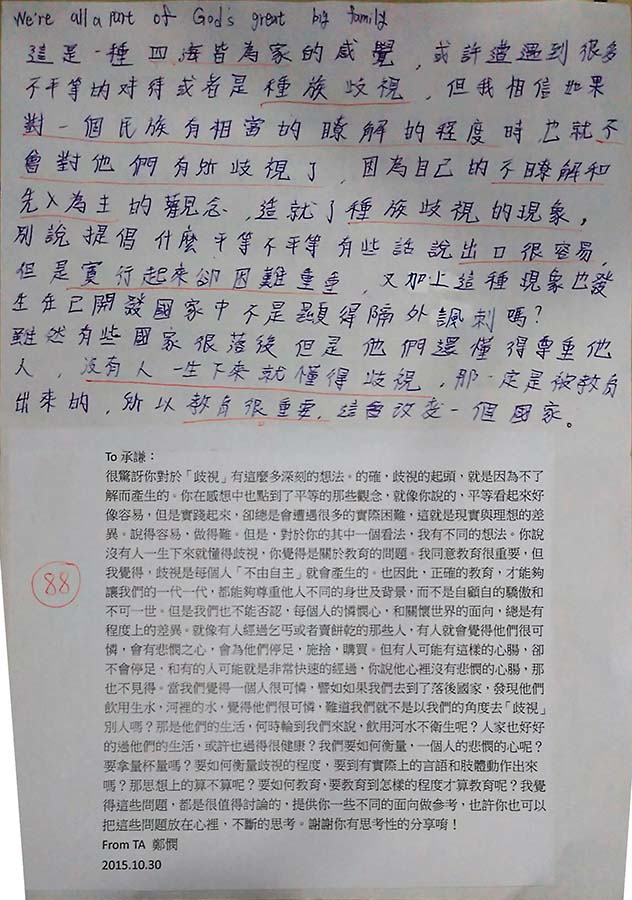 We're all a part of God's great big family
這是一種四海皆為家的感覺，或許遭遇到很多
不平等的對待或者是種族歧視，但我相信如果
對一個民族有相當的瞭解的程度時也就不
會對他們有所歧視了，因為自己的不瞭解和
先入為主的觀念，造就了種族歧視的現象，
別說提倡什麼平等不平等有些話說出口很容易，
但是實行起來卻困難重重，又加上這種現象也發
生在已開發國家中不是顯得隔外諷刺嗎？
雖然有些國家很落後但是他們還懂得尊重他
人，沒有人一生下來就懂得歧視，那一定是被教育
出來的，所以教育很重要，這會改變一個國家。
To 承謙：
很驚訝你對於「歧視」有這麼多深刻的想法。的確，歧視的起頭，就是因為不了
解而產生的。你在感想中也點到了平等的那些觀念，就像你說的，平等看起來好
像容易，但是實踐起來，卻總是會遭遇很多的實際困難，這就是現實與理想的差
異。說得容易，做得難。但是，對於你的其中一個看法，我有不同的想法。你說
沒有人一生下來就懂得歧視，你覺得是關於教育的問題。我同意教育很重要，但
我覺得，歧視是每個人「不由自主」就會產生的。也因此，正確的教育，才能夠
讓我們的一代一代，都能夠尊重他人不同的身世及背景，而不是自顧自的驕傲和
不可一世。但是我們也不能否認，每個人的憐憫心，和關懷世界的面向，總是有
程度上的差異。就像有人經過乞丐或者賣餅乾的那些人，有人就會覺得他們很可
憐，會有悲憫之心，會為他們停足，施捨，購買。但有人可能有這樣的心腸，卻
不會停足，和有的人可能就是非常快速的經過，你說他心裡沒有悲憫的心腸，那
也不見得。當我們覺得一個人很可憐，譬如如果我們去到了落後國家，發現他們
飲用生水，河裡的水，覺得他們很可憐，難道我們就不是以我們的角度去「歧視」
別人嗎？那是他們的生活，何時輪到我們來說，飲用河水不衛生呢？人家也好好
的過他們的生活，或許也過得很健康？我們要如何衡量，一個人的悲憫的心呢？
要拿量杯量嗎？要如何衡量歧視的程度，要到有實際上的言語和肢體動作出來
嗎？那思想上的算不算呢？要如何教育，要教育到怎樣的程度才算教育呢？我覺
得這些問題，都是很值得討論的，提供你一些不同的面向做參考，也許你也可以
把這些問題放在心裡，不斷的思考。謝謝你有思考性的分享唷！
From TA 鄭憫
2015.10.30
88